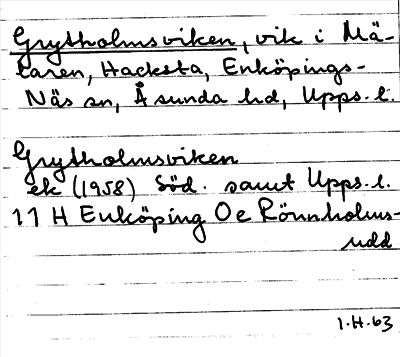 Grytholmsviken, vik i Mä-
laren, Hacksta, Enköpings-
Näs sn, Åsunda hd, Upps. l.
Grytholmsviken
ek (1958) Söd. samt Upps. l.
11 H Enköping Oe Rönnholms-
udd
1.H.63